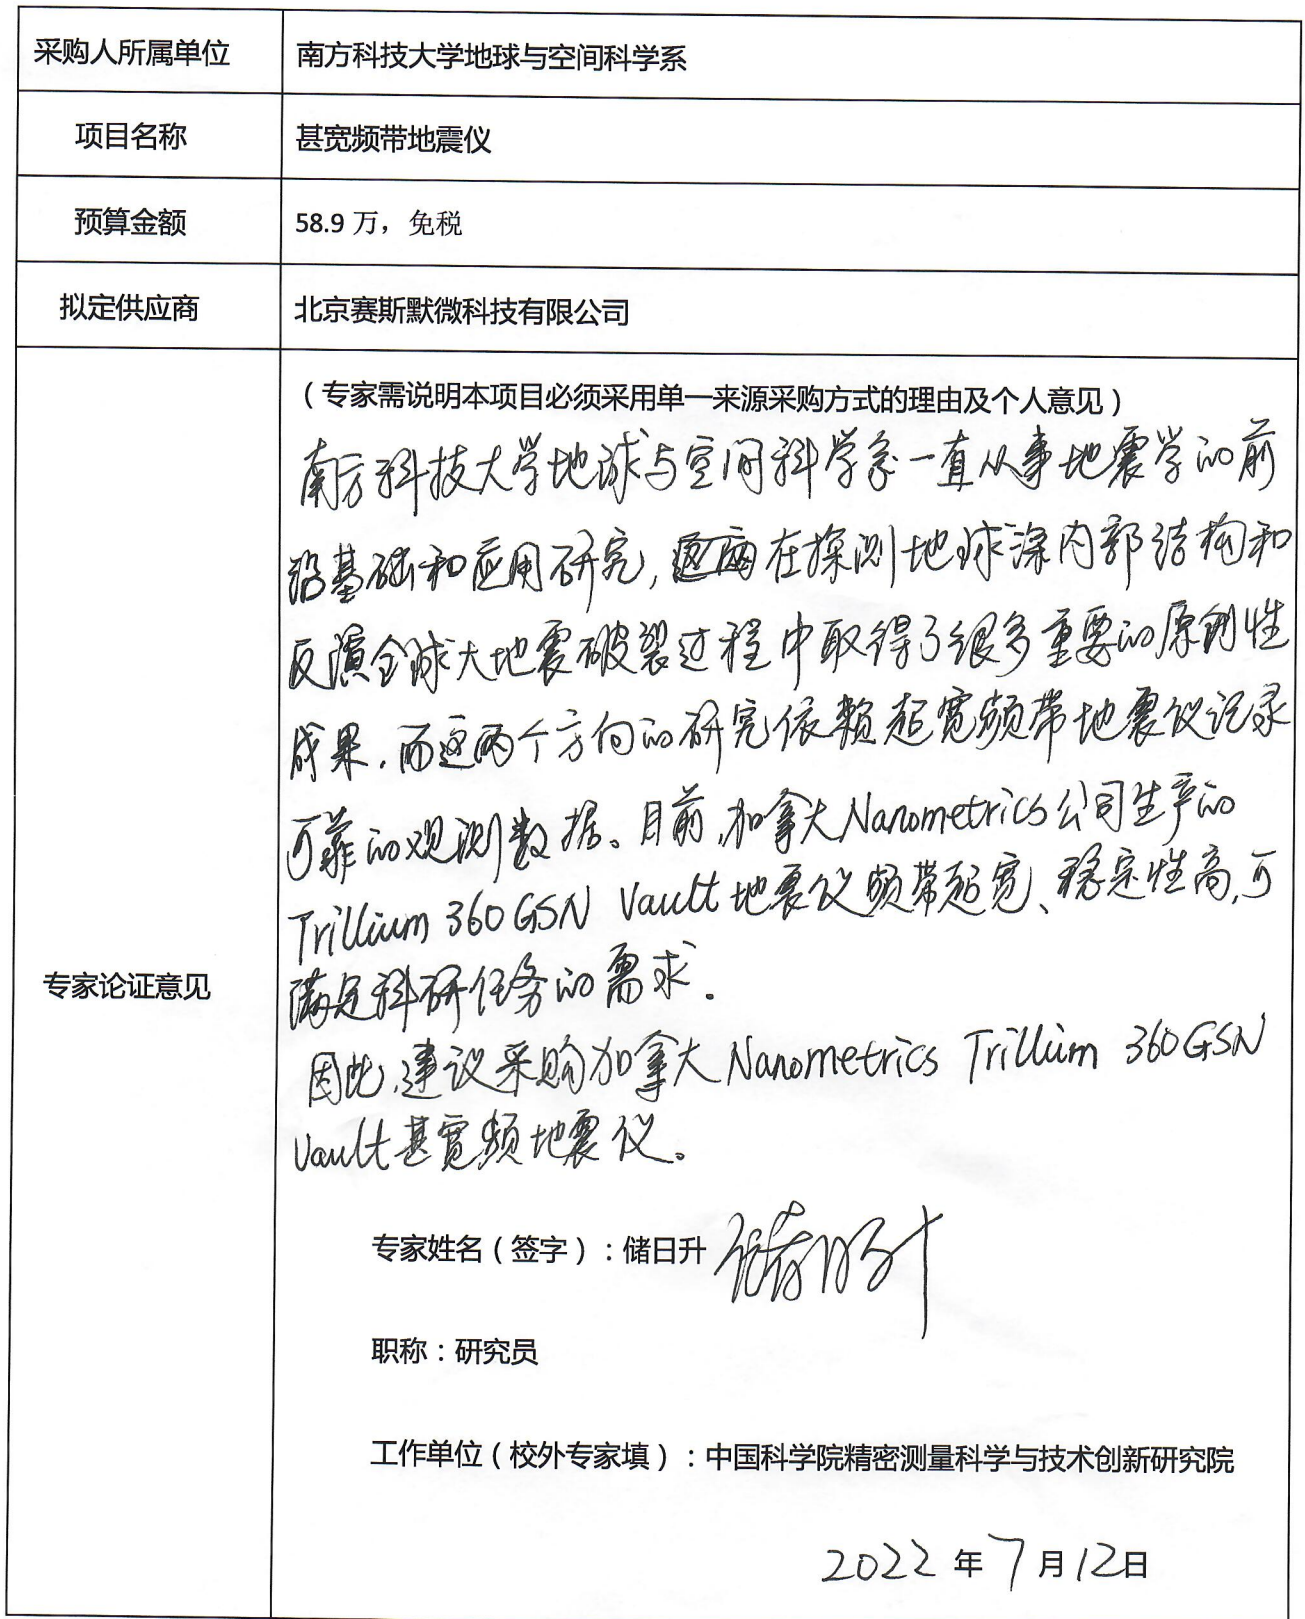 采购人所属单位 南方科技大学地球与空间科学系
项目名称 甚宽频带地震仪
预算金额 58.9 万，免税
拟定供应商 北京赛斯默微科技有限公司
专家论证意见
（专家需说明本项目必须采用单一来源采购方式的理由及个人意见）
南方科技大学地球与空间科学系一直从事地震学的前
沿基础和应用研究，在探测地球深内部结构和
反演全球大地震破裂过程中取得了很多重要的原创性
成果．而这两个方向的研究依赖超宽频带地震仪记录
可靠的观测数据。目前，加拿大Nanometrics公司生产的
Trillium 360 GSN Vault 地震仪频带超宽、稳定性高，可
满足科研任务的需求．
因此，建议采购加拿大 Nanometrics Trillium 360 GSN
Vault 甚宽频地震仪。
专家姓名（签字）：储日升 储日升
职称：研究员
工作单位（校外专家填）：中国科学院精密测量科学与技术创新研究院
2022 年 7 月 12 日